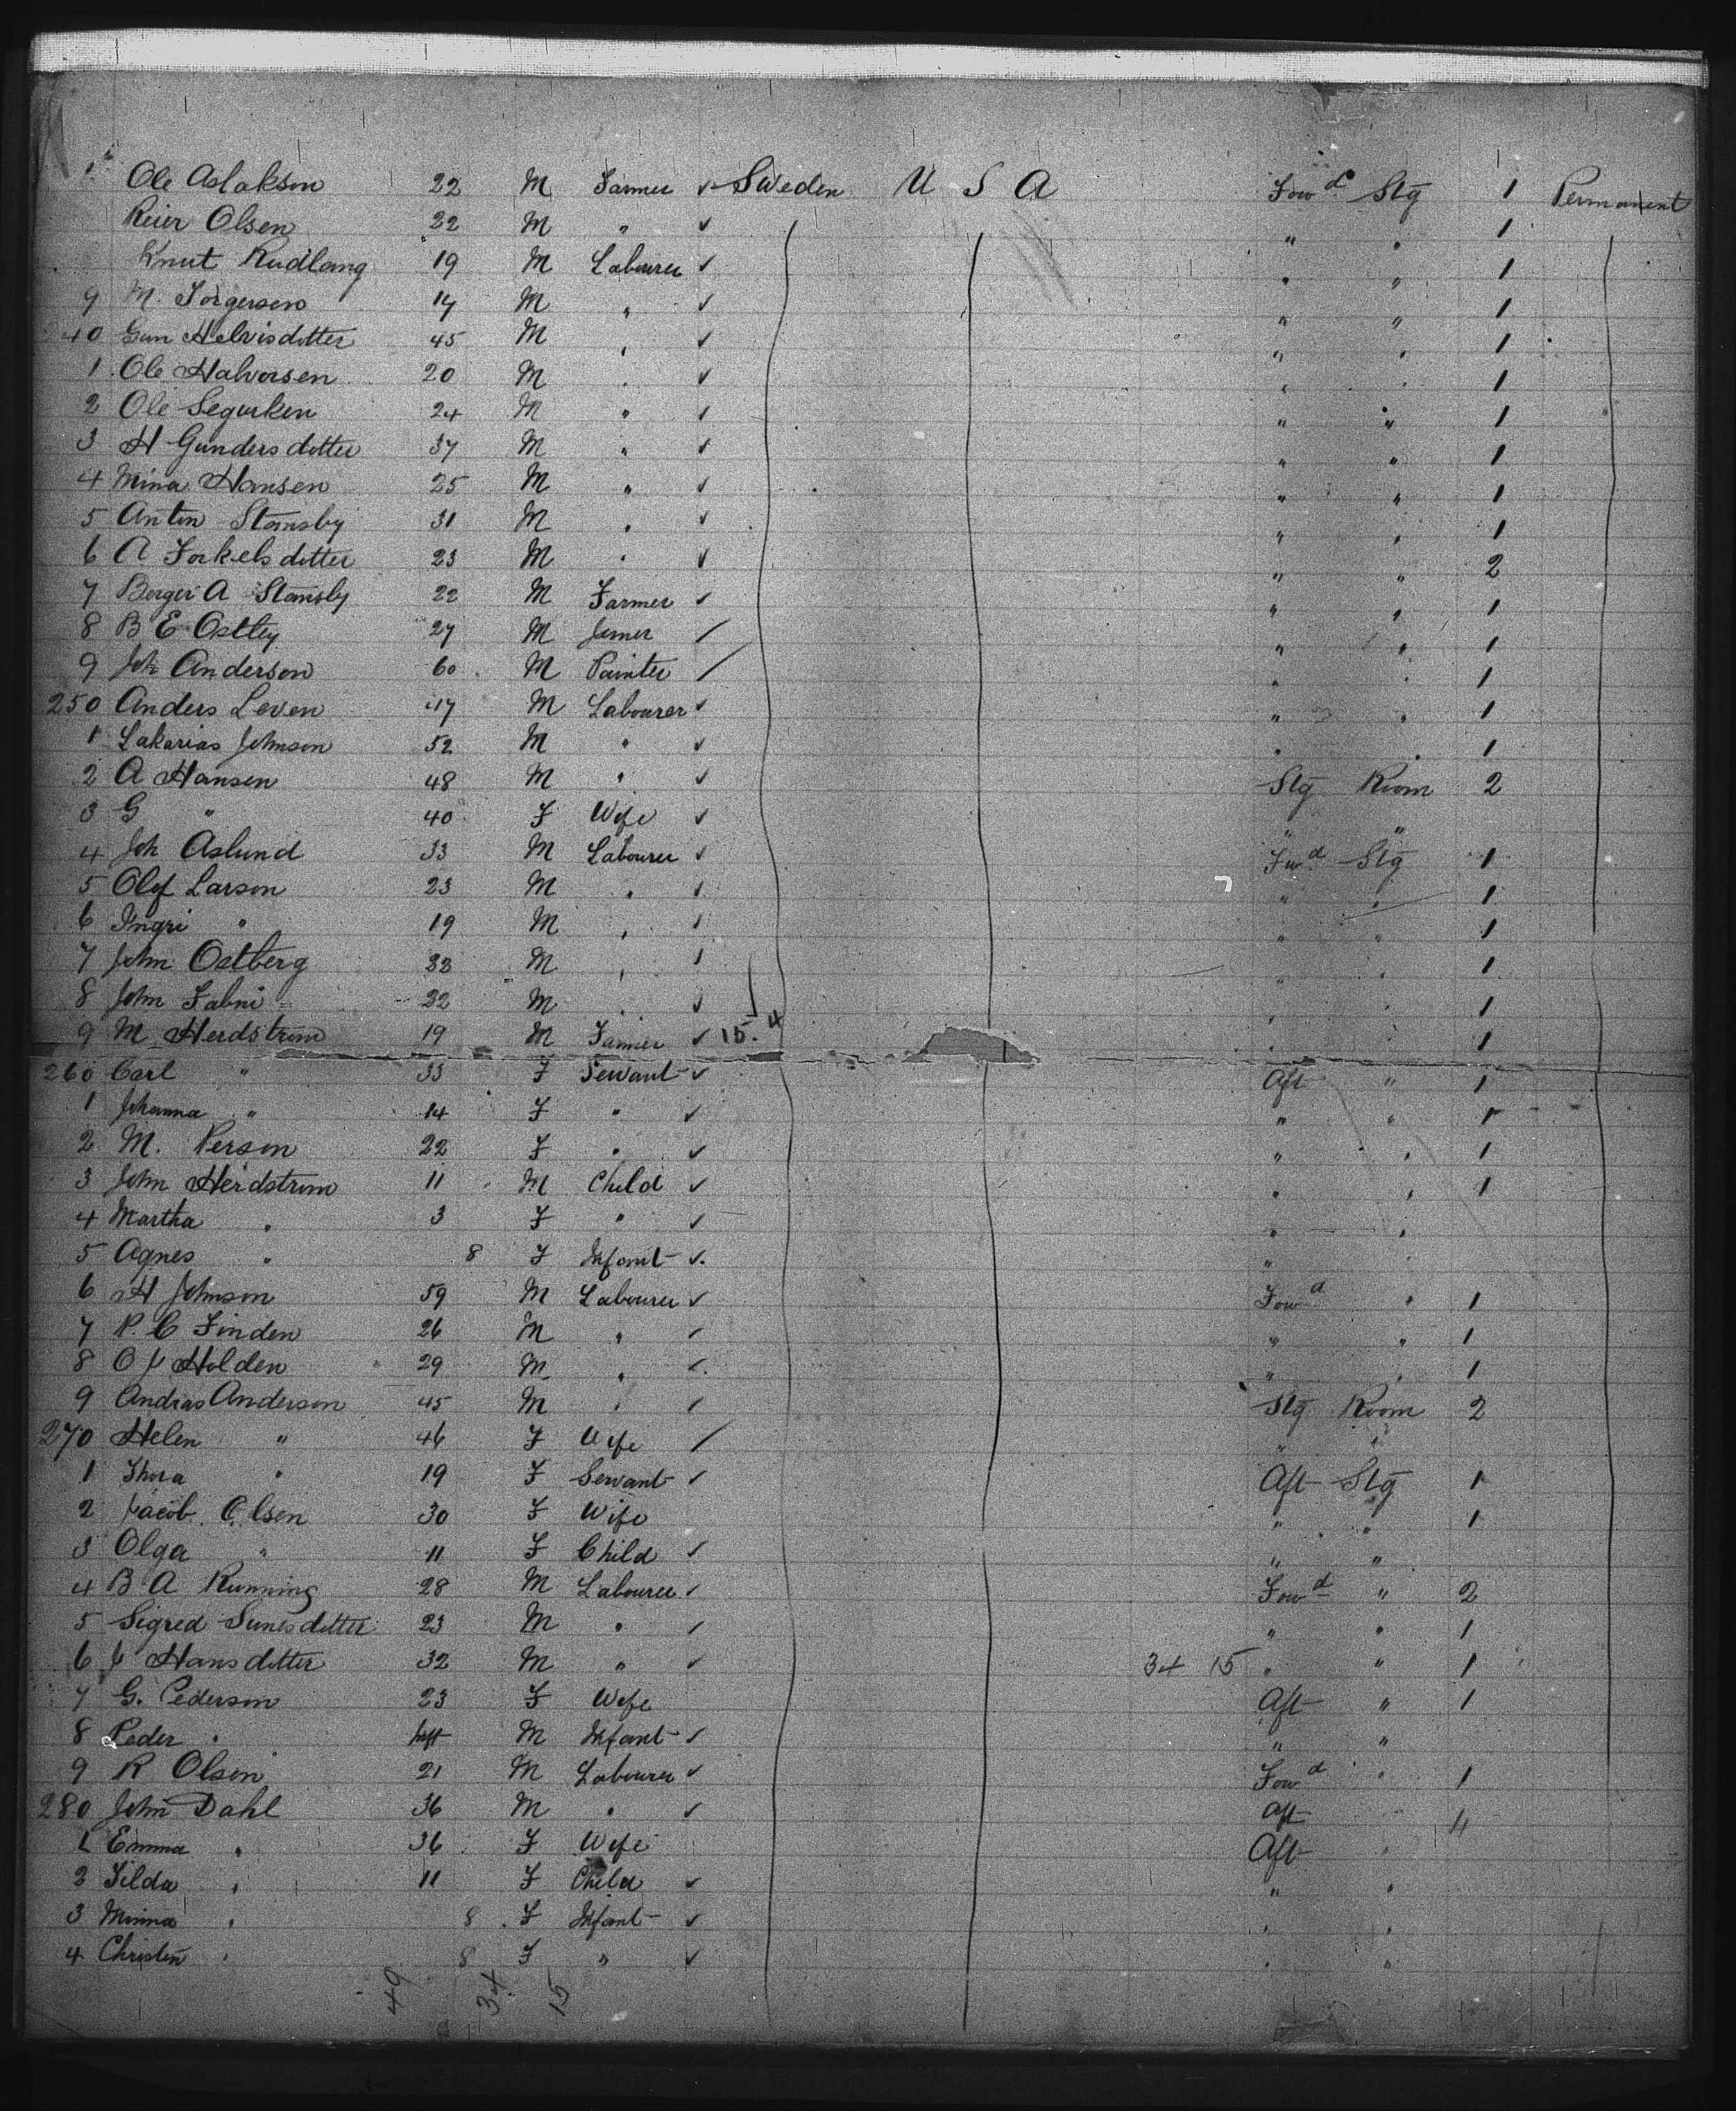 1 Ole Aslakson 22 M Farmer ✓ Sweden U S A Fowd Stg 1 Permanent
Reier Olsen 22 M " ✓ " " 1
Knut Rudlang 19 M Labourer ✓ " " 1
9 M. Torgersen 17 M " ✓ " " 1
40 Gun Helvisdotter 45 M " ✓ " " 1
1 Ole Halvorsen 20 M " ✓ " " 1
2 Ole 24 M " ✓ " " 1
3 H Gundersdotter 37 M " ✓ " " 1
4 Mina Hansen 25 M " ✓ " " 1
5 Anton Stamsby 31 M " ✓ " " 1
6 A Torkelsdotter 23 M " ✓ " " 2
7 Berger A Stamsby 22 M Farmer ✓ " " 1
8 B E Ostley 27 M Joiner / " " 1
9 Joh Anderson 60 M Painter / " " 1
250 Anders Leven 17 M Labourer ✓ " " 1
1 Lakarias Johnson 52 M " ✓ " " 1
2 A Hansen 48 M " ✓ Stg Room 2
3 G " 40 F Wife ✓ " "
4 Joh Aslund 33 M Labourer ✓ Fwd Stg 1
5 Olof Larson 23 M " ✓ " " 1
6 Ingri " 19 M " ✓ " " 1
7 John Ostberg 33 M " ✓ " " 1
8 John Fabni 22 M " ✓ " " 1
9 M Herdstrom 19 M Farmer ✓ 15.4 " " 1
260 Carl " 33 F Servant ✓ Aft " 1
1 Johanna " 14 F " ✓ " " 1
2 M. Person 22 F " ✓ " " 1
3 John Herdstrom 11 M Child ✓ " " 1
4 Martha " 3 F " ✓ " "
5 Agnes " 8 F Infant ✓ " "
6 H Johnson 59 M Labourer ✓ Fowd " 1
7 P. C Finden 26 M " ✓ " " 1
8 O J Holden 29 M " ✓ " " 1
9 Andras Anderson 45 M " ✓ Stg Room 2
270 Helen " 46 F Wife / " "
1 Thora " 19 F Servant ✓ Aft Stg 1
2 Jacob Olsen 30 F Wife " " 1
3 Olga " 11 F Child ✓ " "
4 B A Running 28 M Labourer ✓ Fowd " 2
5 Sigred Sunesdotter 23 M " ✓ " " 1
6 J Hansdotter 32 M " ✓ 34 15 " " 1
7 G. Pederson 23 F Wife Aft " 1
8 Peder " Inft M Infant ✓ " "
9 R Olsen 21 M Labourer ✓ Fowd " 1
280 John Dahl 36 M " ✓ Aft " 4
1 Emma " 36 F Wife Aft "
2 Tilda " 11 F Child ✓ " "
3 Minna " 8 F Infant ✓ " "
4 Christen " 8 F " ✓ " "
49 34 15